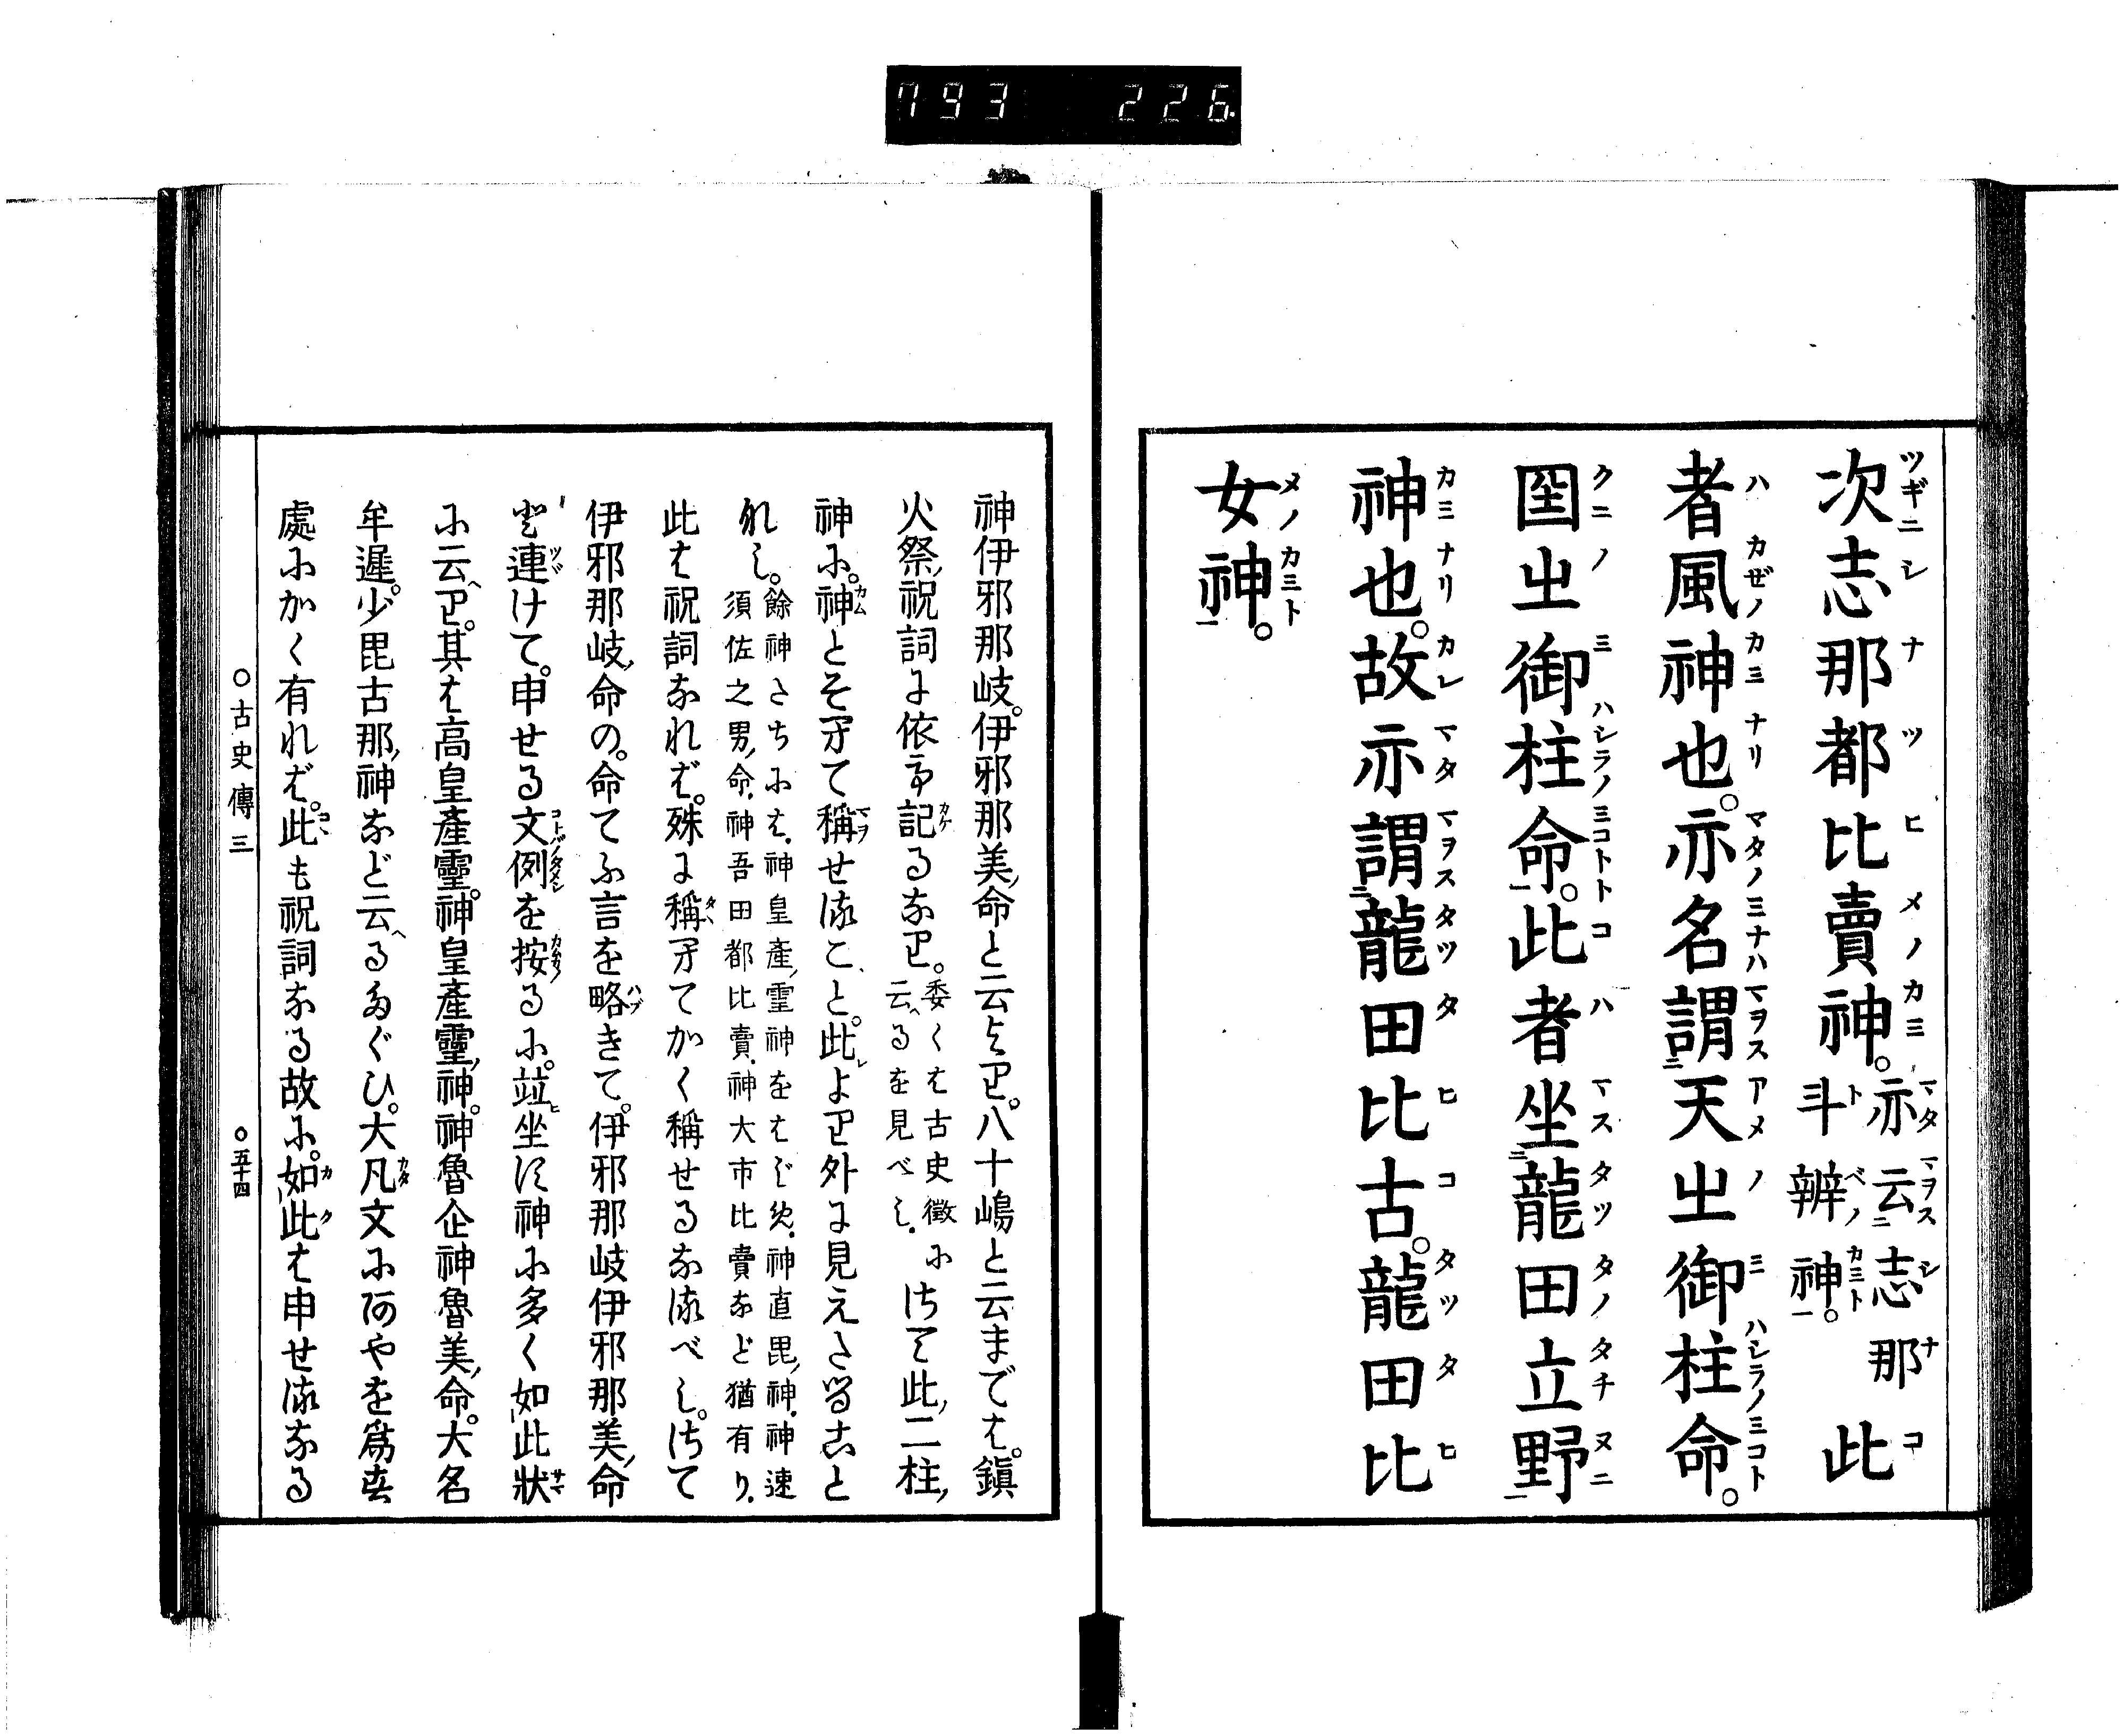 793 226
次志那都比賣神。亦云志那斗辨神。此
者風神也。亦名謂天㞢御柱命。
囶㞢御柱命。此者坐龍田立野
神也。故亦謂龍田比古。龍田比
女神。
神伊邪那岐。伊邪那美命と云より。八十嶋と云までは。鎭
火祭祝詞に依て記るなり。委くは古史徵に云へるを見べし。さて此二柱
神に。神とそヘて稱せること。此より外に見えざることな
れし。餘神たちには、神皇產靈神をはじめ、神直毘神、神速須佐之男命、神吾田都比賣、神大市比賣など猶有り、
此は祝詞なれば。殊に稱ヘてかく稱せるなるべし。さて
伊邪那岐命の。命てふ言を略きて。伊邪那岐伊邪那美命
と連けて。申せる文例を按るに。竝坐す神に多く如此狀
に云へり。其は高皇產靈。神皇產靈神。神魯企神魯美命。大名
牟遲。少毘古那神など云へるたぐひ。大凡文にあやを爲す
處にかく有れば。此も祝詞なる故に。如此は申せるなる
○古史傳三 ○五十四